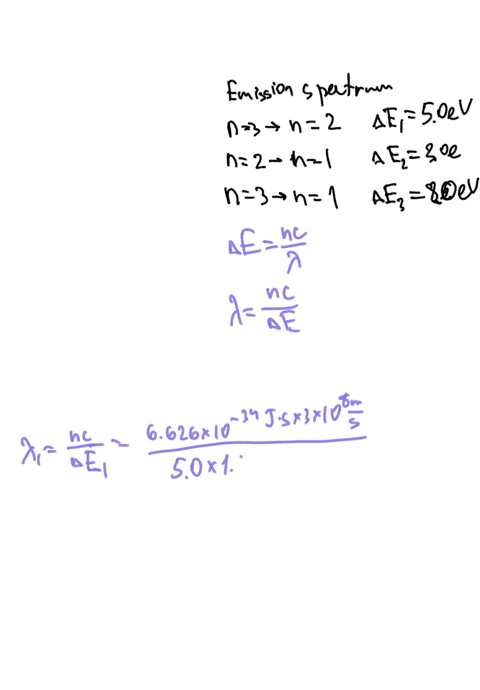 Emission spectrum
n=3→n=2 ΔE₁=5.0eV
n=2→n=1 ΔE₂=3.0e
n=3→n=1 ΔE₃=8.0eV
ΔE=hc/λ
λ=hc/ΔE
λ₁=hc/ΔE₁=6.626×10⁻³⁴J·s×3×10⁸m/s / 5.0×1.